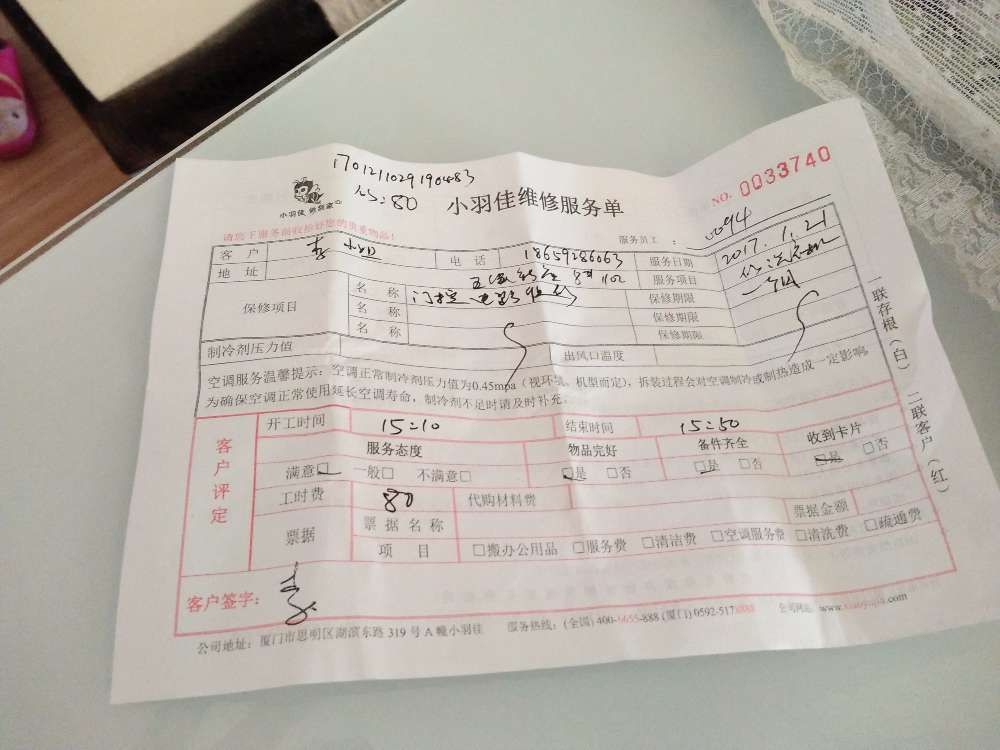 1701211029190483
80
NO. 0033740
小羽佳 做到家
小羽佳维修服务单
服务员工 : 0094
客户 李 电话 18659286063 服务日期 2017.1.21
地址 8# 1102 服务项目
保修项目 名称 门控 保修期限 一个月
名称 保修期限
名称 保修期限
制冷剂压力值 出风口温度
空调服务温馨提示:空调正常制冷剂压力值为0.45mpa(视环境、机型而定),拆装过程会对空调制冷或制热造成一定影响
为确保空调正常使用延长空调寿命,制冷剂不足时请及时补充
客户评定
开工时间 15:10 结束时间 15:50
服务态度 物品完好 备件齐全 收到卡片
满意□ 一般□ 不满意□ □是 □否 □是 □否 □是 □否
工时费 80 代购材料费
票据 票据名称 票据金额
项目 □搬办公用品 □服务费 □清洁费 □空调服务费 □清洗费 □疏通费
客户签字: 李
公司地址:厦门市思明区湖滨东路 319 号 A 幢小羽佳 服务热线:(全国) 400-6655-888 (厦门) 0592-517 公司网站: www.xiaoyujia.com
一联存根(白) 二联客户(红)